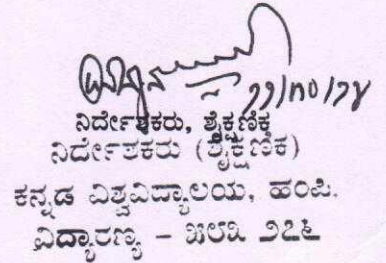 ೨೨/೧೦/೨೪
ನಿರ್ದೇಶಕರು, ಶೈಕ್ಷಣಿಕ
ನಿರ್ದೇಶಕರು (ಶೈಕ್ಷಣಿಕ)
ಕನ್ನಡ ವಿಶ್ವವಿದ್ಯಾಲಯ, ಹಂಪಿ.
ವಿದ್ಯಾರಣ್ಯ – ೫೮೩ ೨೭೬